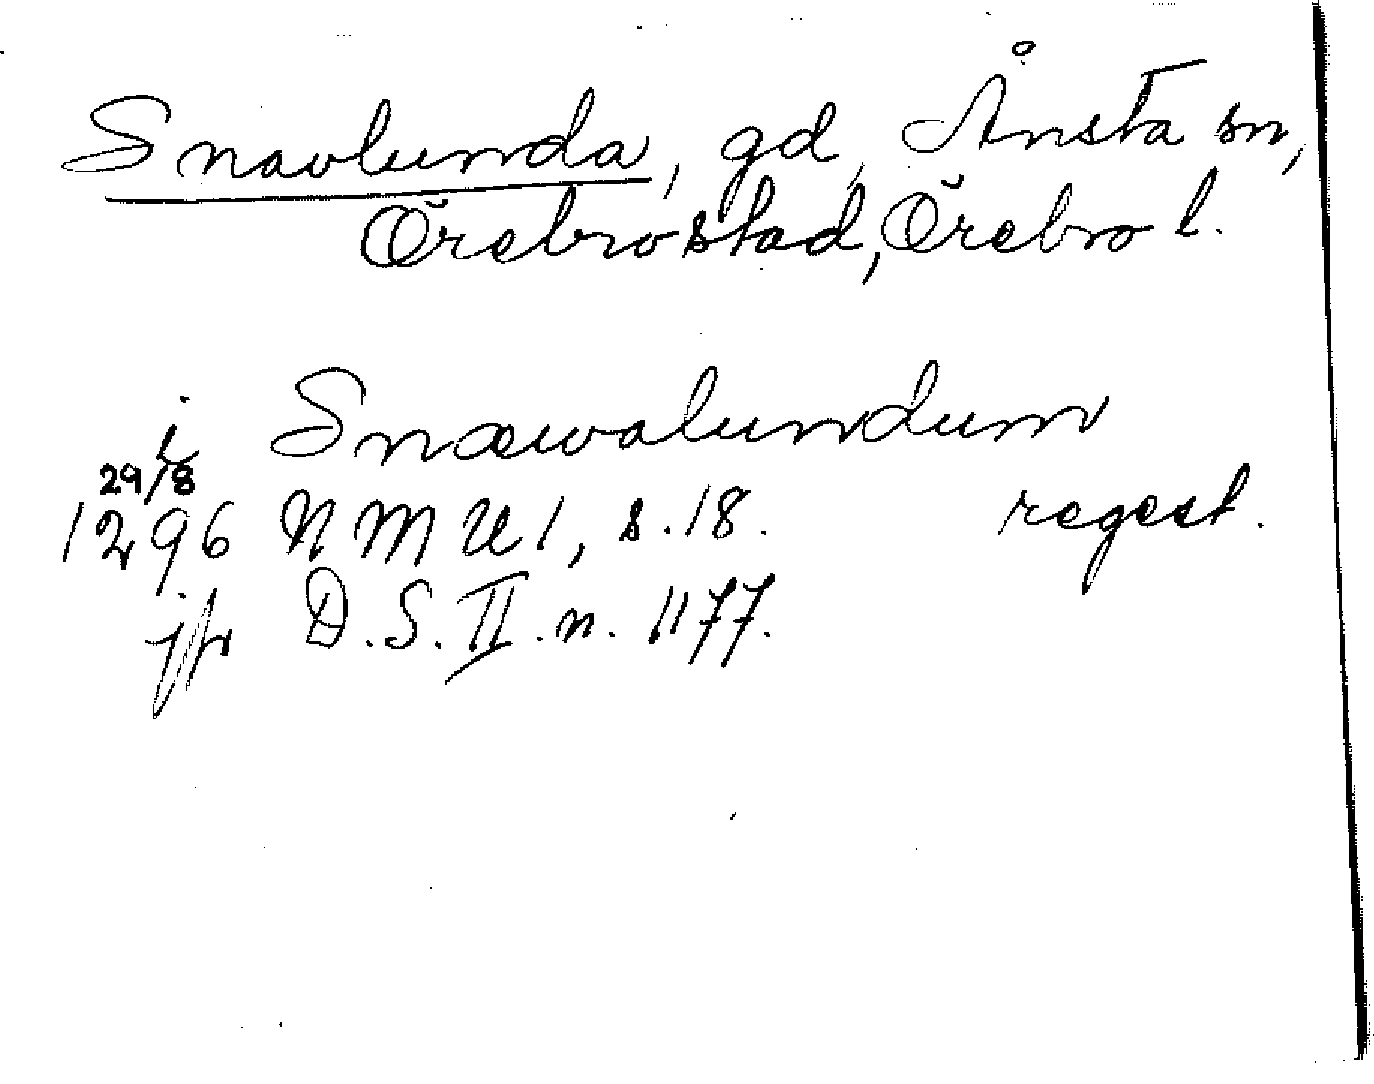 Snavlunda, gd, Ånsta sn,
Örebro stad, Örebro l.
i Snæwalundum
29/8
1296 NMU 1, s. 18. regest.
jfr D.S. II. n. 1177.